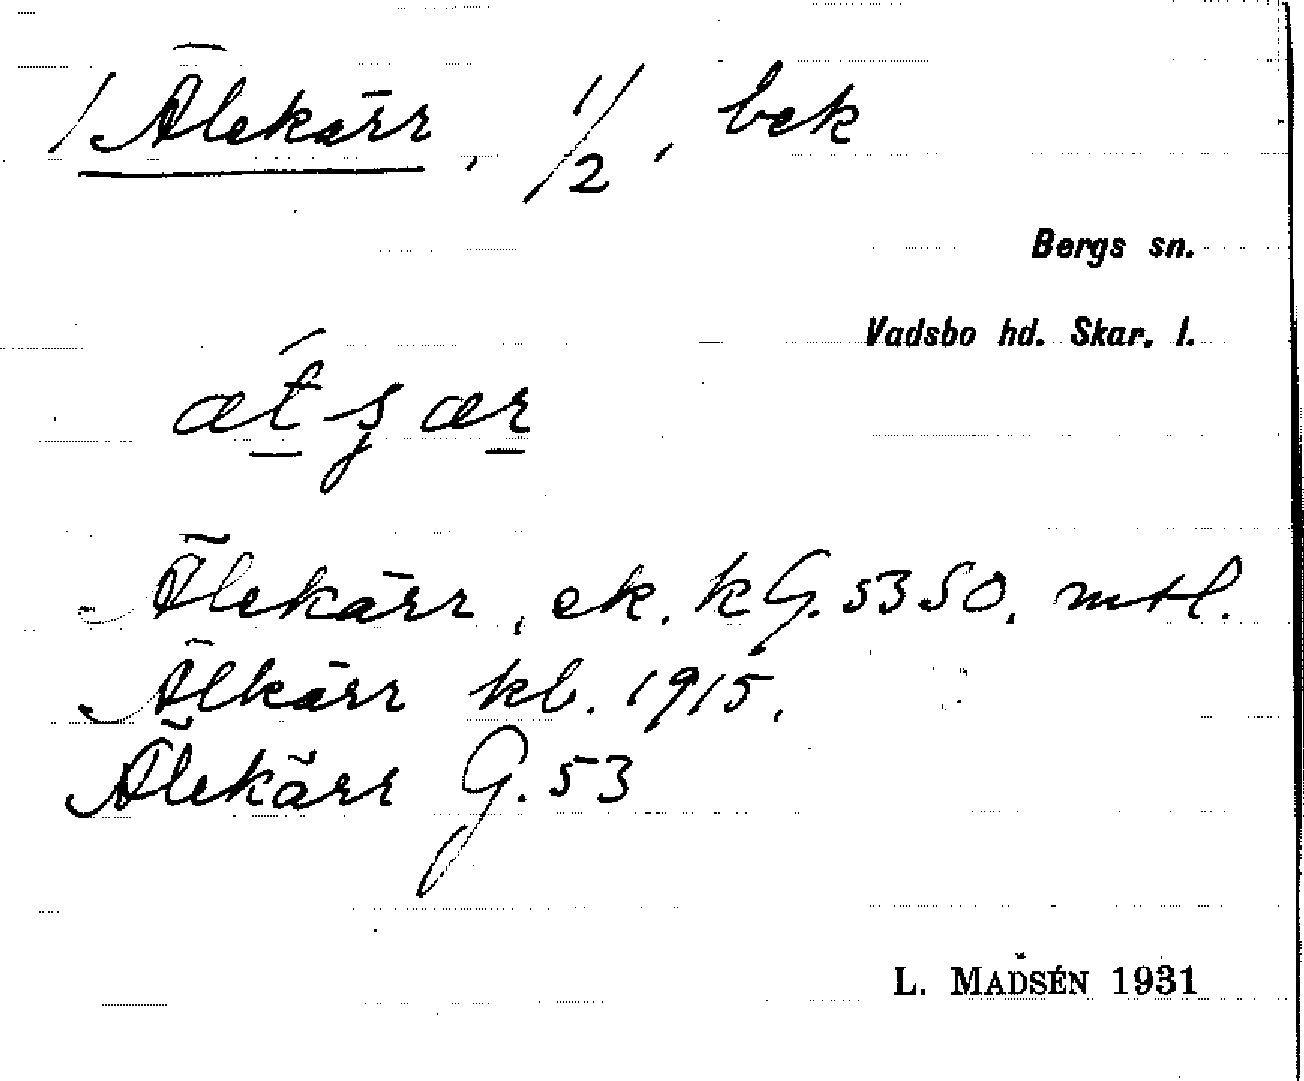 / Älekärr, 1/2, bek
Bergs sn.
Vadsbo hd. Skar. l.
Älekärr, ek. kG. 53 SO, mtl.
Älkärr kb. 1915.
Älekärr G. 53
L. MADSÉN 1931